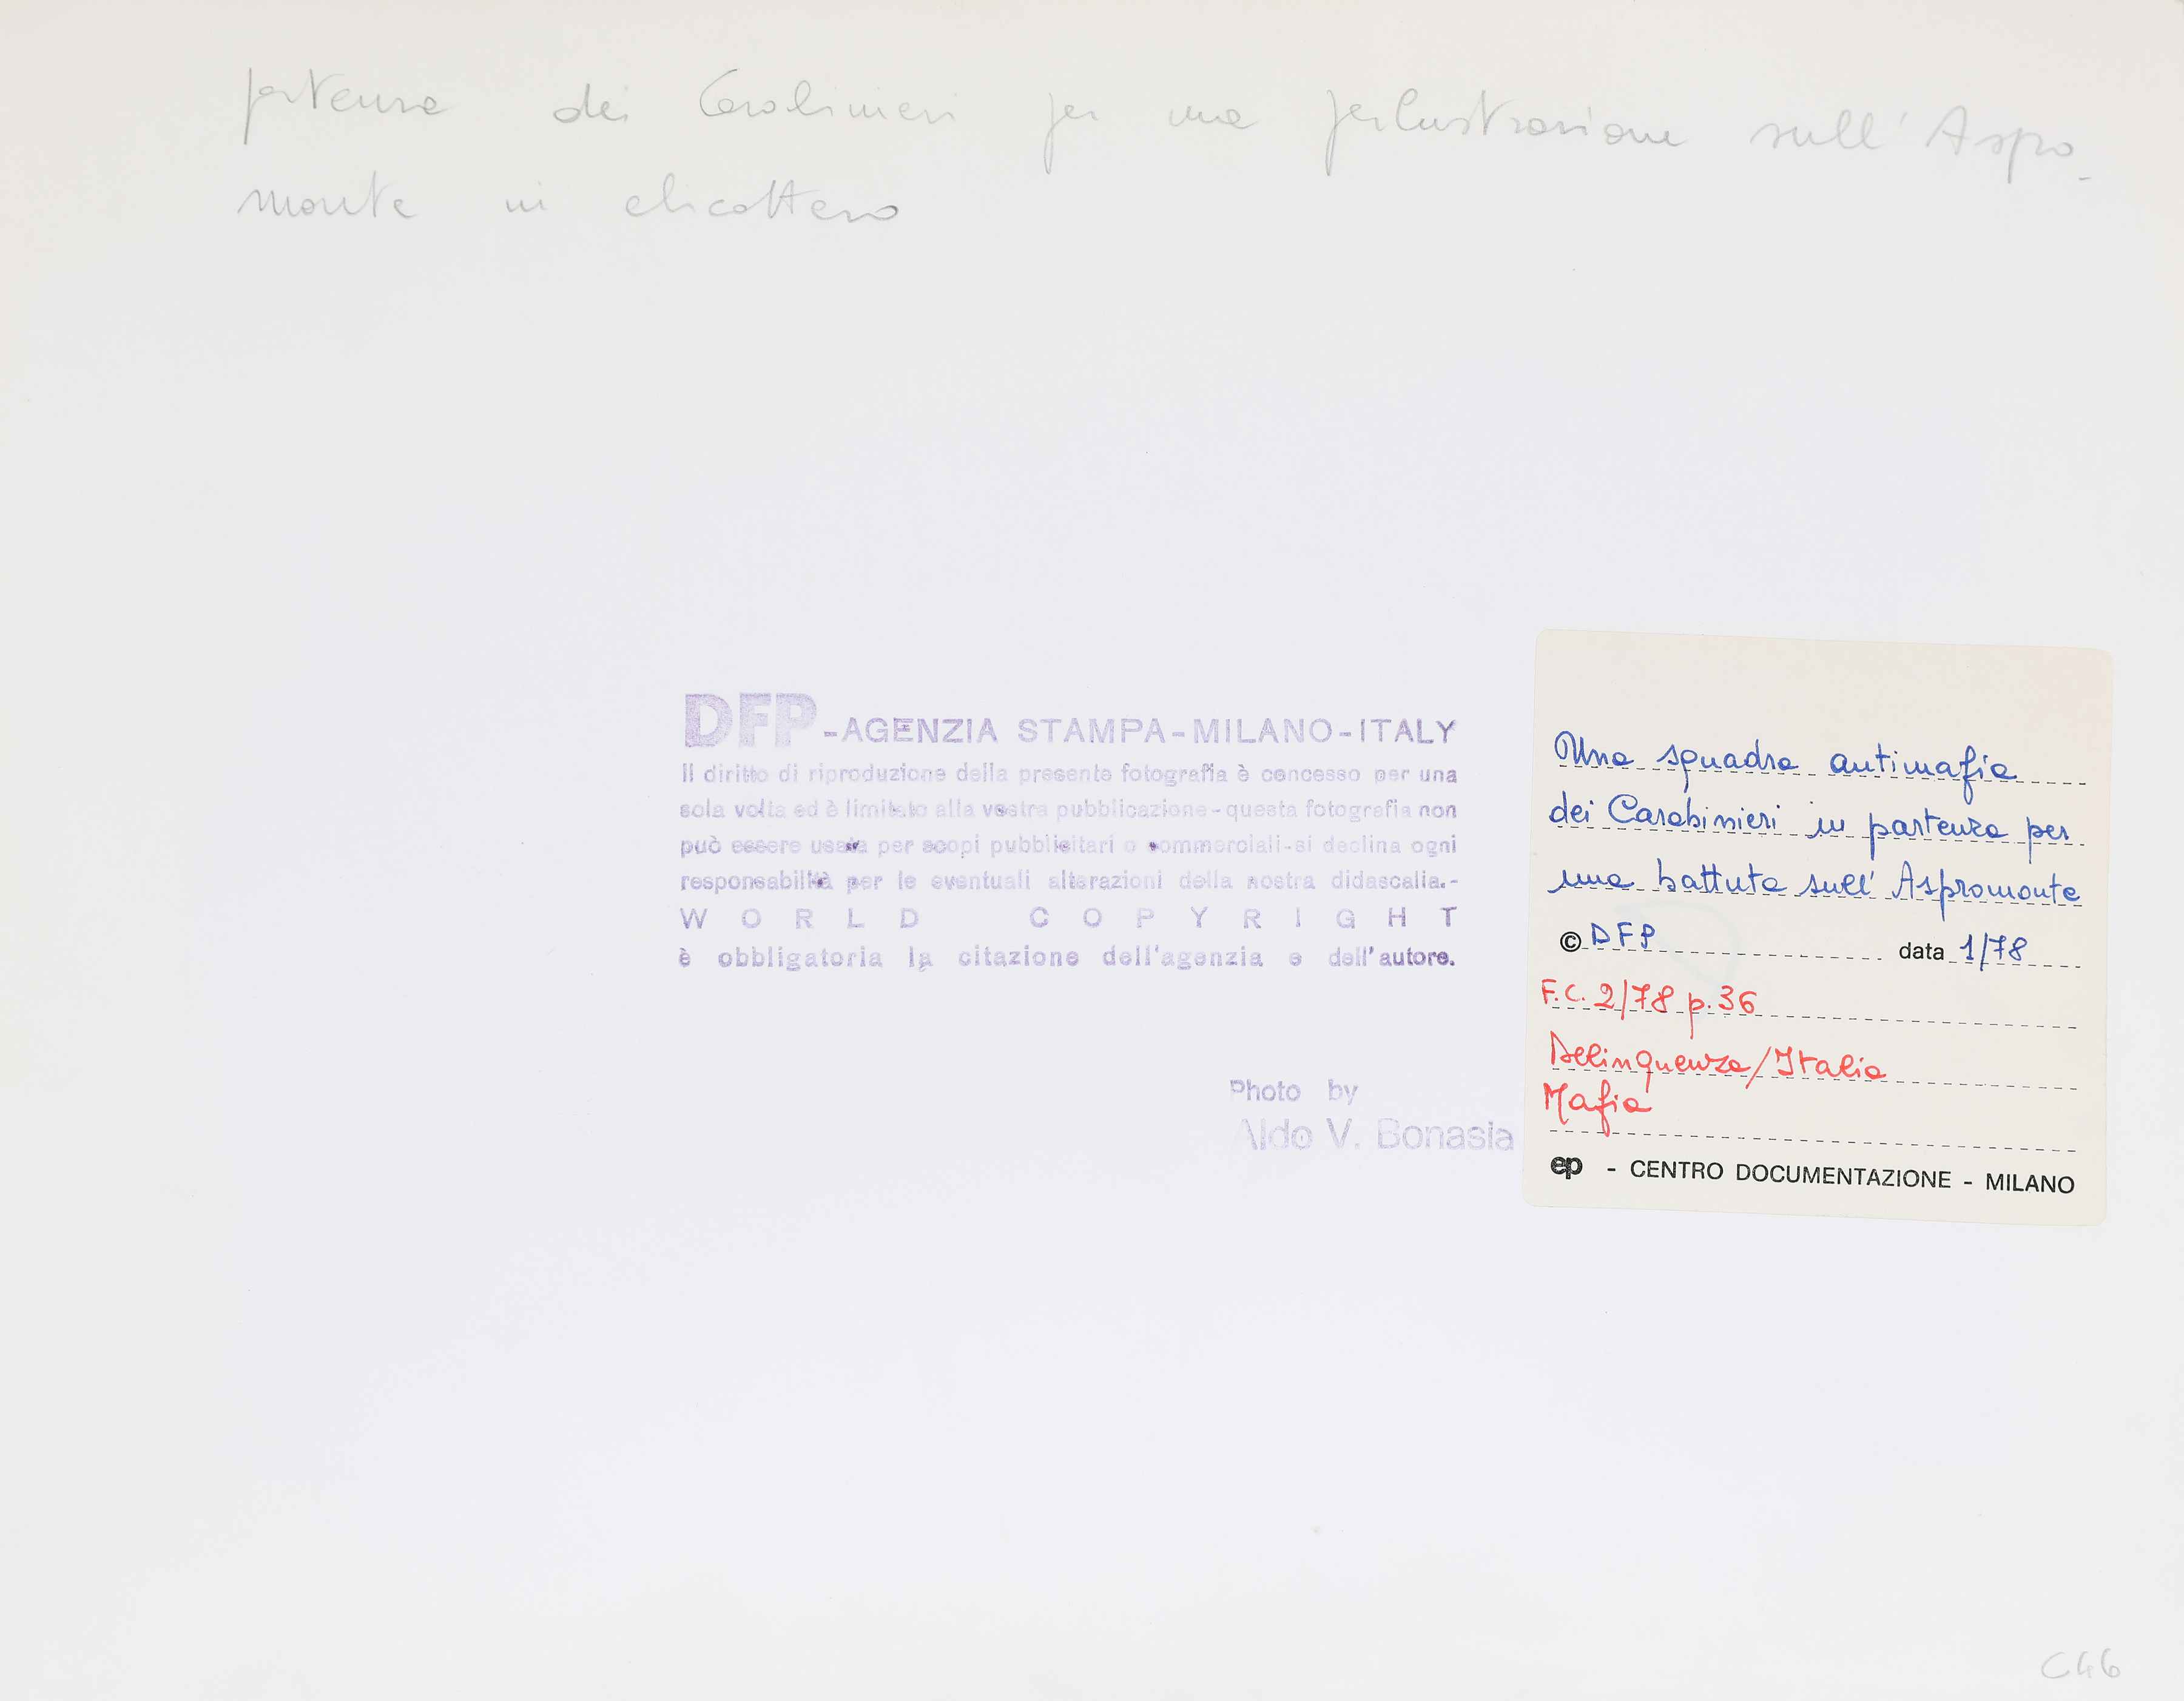 partenza dei Carabinieri per una perlustrazione sull'Aspro-
monte in elicottero
DFP-AGENZIA STAMPA-MILANO-ITALY
Il diritto di riproduzione della presente fotografia è concesso per una
sola volta ed è limitato alla vostra pubblicazione-questa fotografia non
può essere usata per scopi pubblicitari o commerciali-si declina ogni
responsabilità per le eventuali alterazioni della nostra didascalia.-
WORLD COPYRIGHT
è obbligatoria la citazione dell'agenzia e dell'autore.
Photo by
Aldo V. Bonasia
Una squadra antimafia
dei Carabinieri in partenza per
una battuta sull'Aspromonte
© DFP data 1/78
F.C. 2/78 p. 36
Delinquenza/Italia
Mafia
ep - CENTRO DOCUMENTAZIONE - MILANO
C46